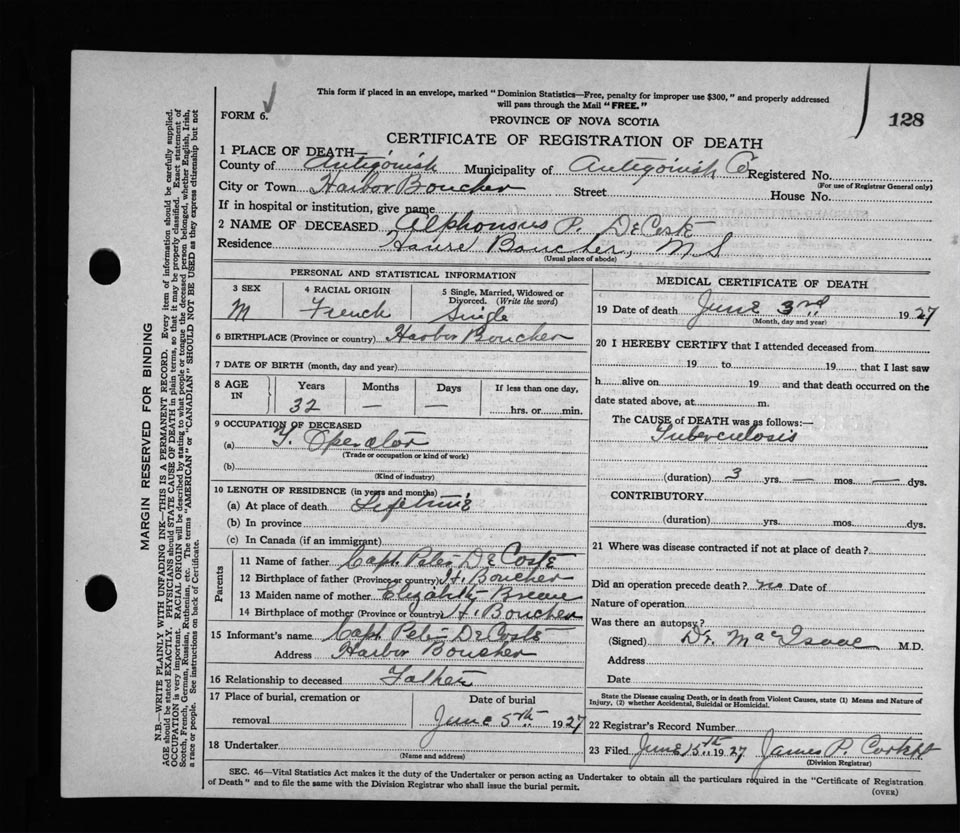 This form if placed in an envelope, marked "Dominion Statistics—Free, penalty for improper use $300," and properly addressed
will pass through the Mail "FREE."
FORM 6.
PROVINCE OF NOVA SCOTIA
128
CERTIFICATE OF REGISTRATION OF DEATH
1 PLACE OF DEATH—
County of Antigonish Municipality of Antigonish Co Registered No.
(For use of Registrar General only)
City or Town Harbor Boucher Street House No.
If in hospital or institution, give name
2 NAME OF DECEASED Alphonsus P. DeCoste
Residence Boucher, N S
(Usual place of abode)
PERSONAL AND STATISTICAL INFORMATION
3 SEX 4 RACIAL ORIGIN 5 Single, Married, Widowed or
Divorced. (Write the word)
M French Single
6 BIRTHPLACE (Province or country) Harbor Boucher
7 DATE OF BIRTH (month, day and year)
8 AGE IN Years Months Days If less than one day,
32 — — hrs. or min.
9 OCCUPATION OF DECEASED
(a) T. Operator
(Trade or occupation or kind of work)
(b)
(Kind of industry)
10 LENGTH OF RESIDENCE (in years and months)
(a) At place of death Lifetime
(b) In province
(c) In Canada (if an immigrant)
Parents
11 Name of father Capt. Peter DeCoste
12 Birthplace of father (Province or country) H. Boucher
13 Maiden name of mother Elizabeth Breen
14 Birthplace of mother (Province or country) H. Boucher
15 Informant's name Capt Peter DeCoste
Address Harbor Boucher
16 Relationship to deceased Father
17 Place of burial, cremation or Date of burial
removal June 5th 1927
18 Undertaker
(Name and address)
MEDICAL CERTIFICATE OF DEATH
19 Date of death June 3rd 1927
(Month, day and year)
20 I HEREBY CERTIFY that I attended deceased from
19 to 19, that I last saw
h alive on 19 and that death occurred on
date stated above, at m.
The CAUSE of DEATH was as follows:—
Tuberculosis
(duration) 3 yrs. — mos. — dys.
CONTRIBUTORY
(duration) yrs. mos. dys.
21 Where was disease contracted if not at place of death?
Did an operation precede death? no Date of
Nature of operation
Was there an autopsy?
(Signed) Dr. MacIsaac M.D.
Address
Date
State the Disease causing Death, or in death from Violent Causes, state (1) Means and Nature of
Injury, (2) whether Accidental, Suicidal or Homicidal.
22 Registrar's Record Number
23 Filed June 15th 1927 James P.
(Division Registrar)
SEC. 46—Vital Statistics Act makes it the duty of the Undertaker or person acting as Undertaker to obtain all the particulars required in the "Certificate of Registration
of Death" and to file the same with the Division Registrar who shall issue the burial permit.
(OVER)
MARGIN RESERVED FOR BINDING
N.B.—WRITE PLAINLY WITH UNFADING INK—THIS IS A PERMANENT RECORD. Every item of information should be carefully supplied.
AGE should be stated EXACTLY. PHYSICIANS should STATE CAUSE OF DEATH in plain terms, so that it may be properly classified. Exact statement of
OCCUPATION is very important. RACIAL ORIGIN will be described by stating to what people or tongue the deceased person belonged, whether English, Irish,
Scotch, French, German, Russian, Ruthenian, etc. The terms "AMERICAN" or "CANADIAN" SHOULD NOT BE USED as they express citizenship but not
a race or people. See instructions on back of Certificate.